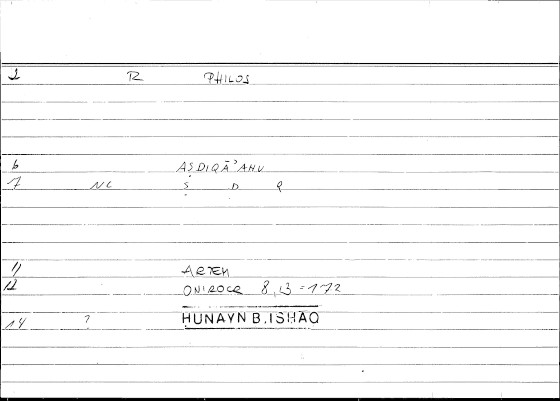 1 R PHILOS
6 AṢDIQĀʾAHU
7 NC Ṣ D Q
11 ARTEM
12 ONIROCR 8,13 = 172
14 ? HUNAYN B. ISHĀQ